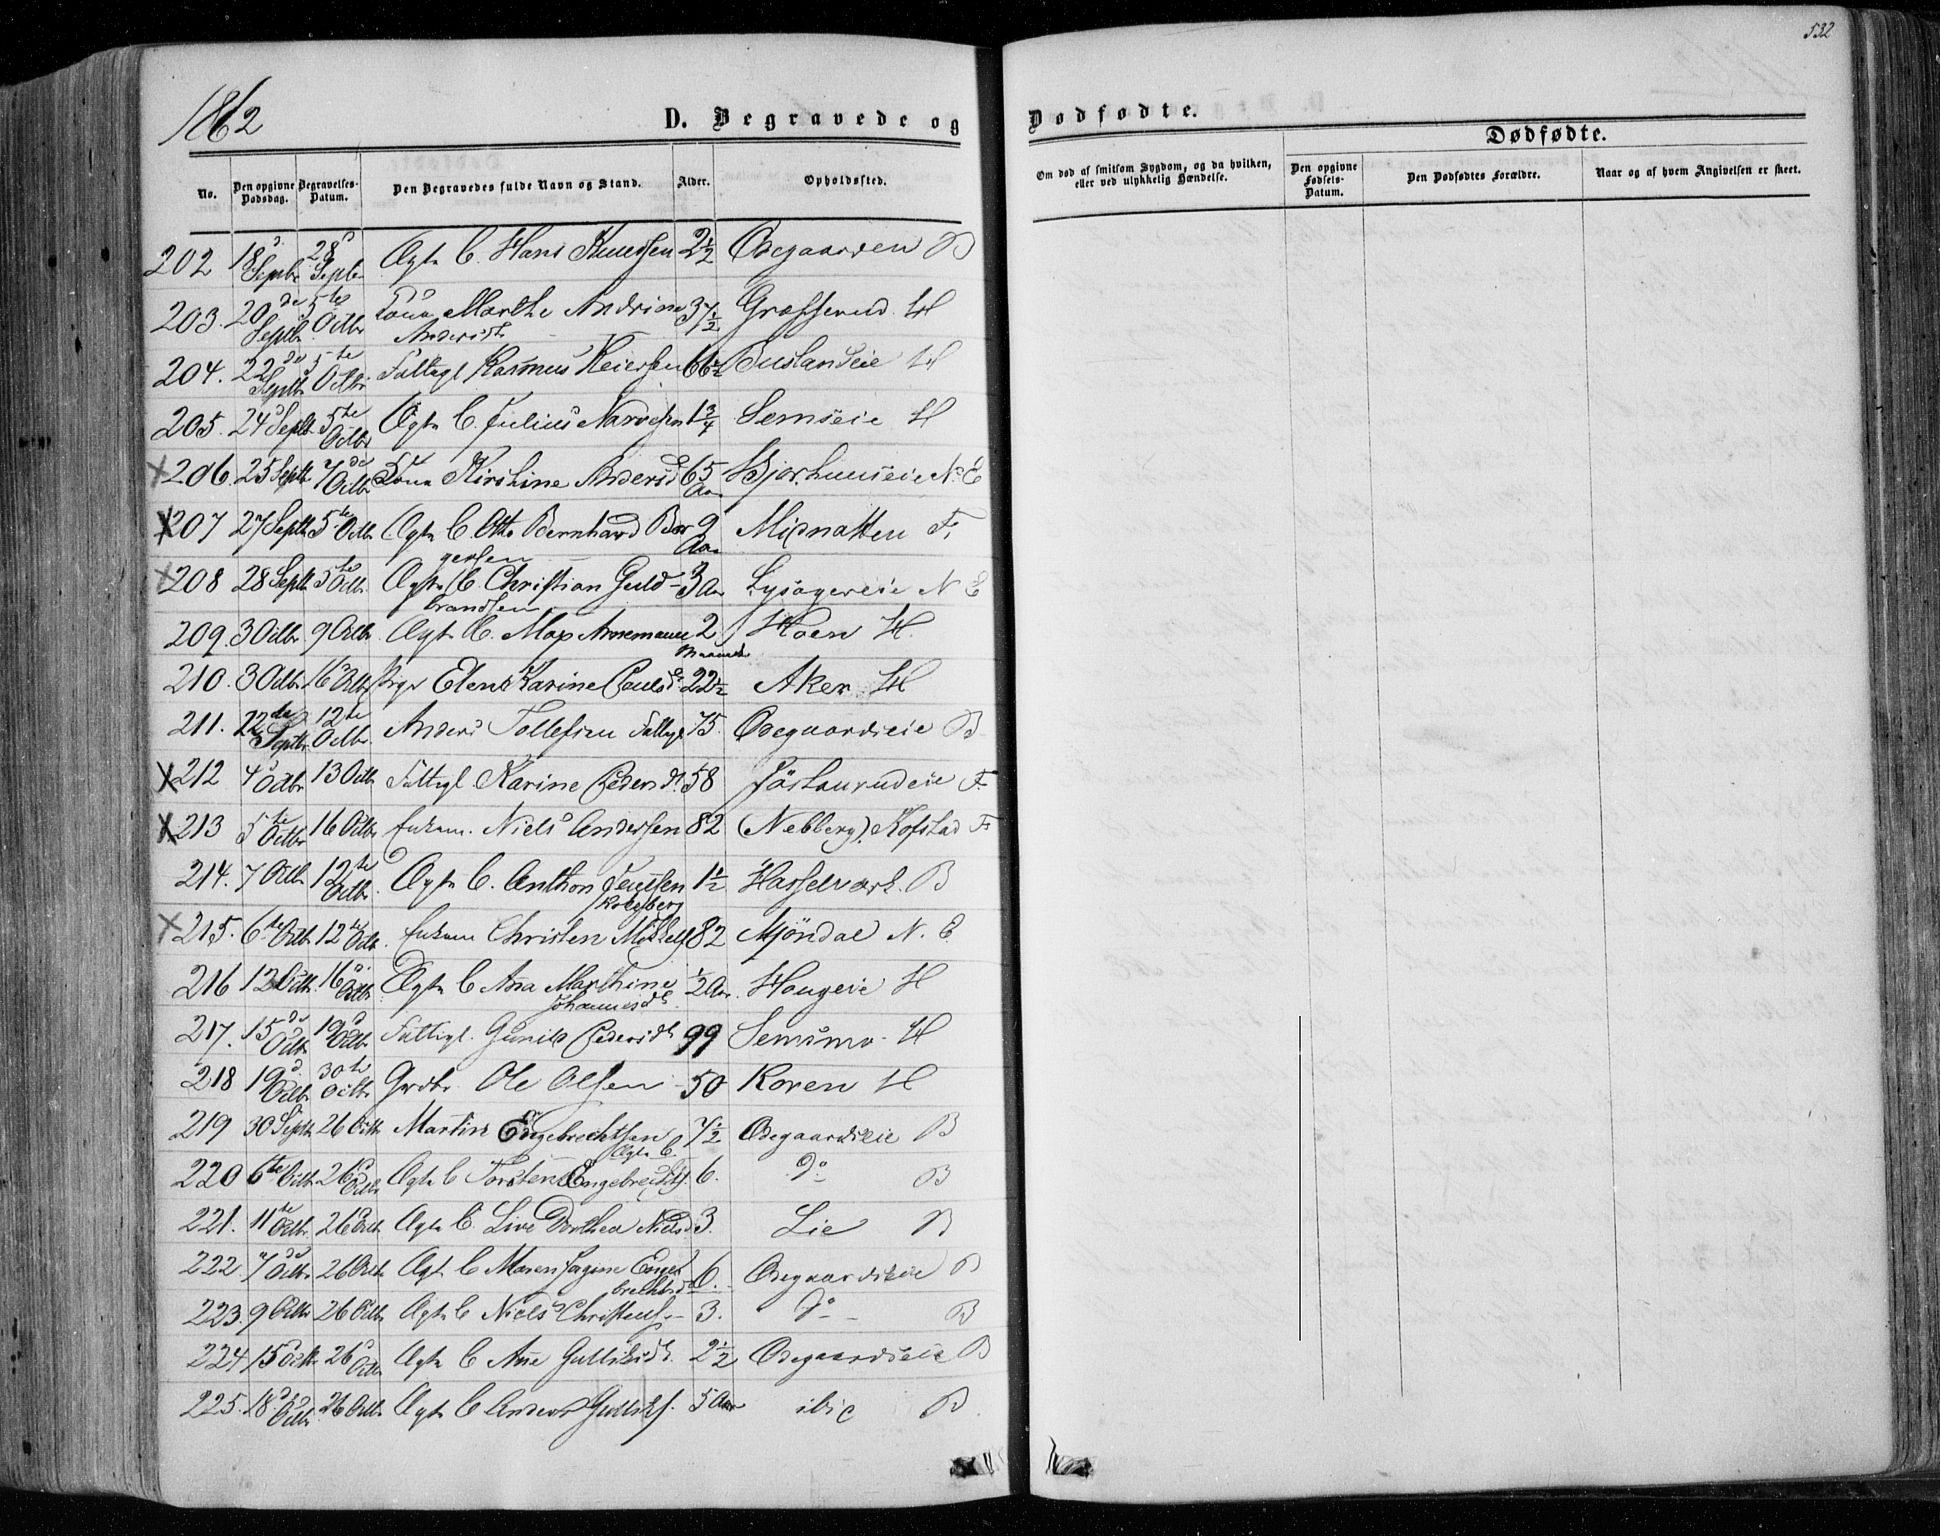 532
1862
D. Begravede og
Dødfødte.
No.
Den opgivne Dødsdag.
Begravelses-Datum.
Den Begravedes fulde Navn og Stand.
Alder.
Opholdssted.
Om død af smitsom Sygdom, og da hvilken, eller ved ulykkelig Hændelse.
Dødfødte.
Den opgivne Fødsels-Datum.
Den Dødfødtes Forældre.
Naar og af hvem Angivelsen er skeet.
202 18 Septbr. 28 Septbr Ægte C. Hans Knudsen 2½ Ødegaarden B
203. 20de Septbr. 5te Octbr Marthe Andrine Andersdt 37½ H
204. 22de Septbr 5te Octbr Fattigl Rasmus Reiersen 66½ Buslandeie H
205. 24 Septb. 5te Octbr Ægte C. Julius Narvesen 1¾ Semseie H
206. 25 Septb 7de Octbr Kirstine Andersd 65 Aar N. E
207 27 Septb 5te Octbr Ægte C. Otto Bernhard Bør-gersen 9 Aar Midnatten F.
208 28 Septb 5te Octbr. Ægte C Christian Guld-brandsen 3 Aar Lysagereie N E
209. 3 Octbr. 9 Octbr. Ægte C. 2 Maaneder Hoen H.
210. 3 Octbr. 16 Octbr Pige Elen Karine Paulsd. 22½ Aker H
211. 22de Septbr. 12te Octbr. Anders Tollefsen Fattigl 75. Ødegaardseie B
212 4 Octbr 13 Octbr Fattigl. Karine Pedersdt. 58 F
213 5te Octbr 16 Octbr Enkem. Niels Andersen 82 (Nebberg) Kofstad F
214. 7 Octbr. 12te Octbr. Ægte C. Anthon Jensen 1½ Hasselværk. B
215. 6te Octbr. 12te Octb. Enkem Christen Mikkels 82 Mjöndal N. E.
216 12 Octbr. 16 Octbr. Ægte C Ana Marthine Johannesdt. ½ Aar. Hougeie H
217. 15de Octbr 19 Octbr. Fattigl. Gunild Pedersdt 99 Semsmo. H
218 19 Octbr 30te Octbr. Grdbr. Ole Olsen 50 Koren H
219 30 Septb 26 Octb Martin Engebrechtsen Ægte C 7½ Ødegaardseie B
220 6te Octbr. 26 Octbr. Ægte C Torsten Engebrechts. 6. Do B
221. 11te Octbr. 26 Octb. Ægte C. Live Dorthea Nielsd 3. Lie B
222 7de Octbr 26 Octb. Ægte C Maren Jagine Engebrechtsd 6. Ødegaardseie B
223. 9 Octbr 26 Octbr Ægte C Niels Christens. 3. Do B
224. 15 Octb. 26 Octbr Ægte C Ane Gulliksdt. 2½ Ødegaardseie B
225. 18de Octbr. 26 Octbr. Ægte C Anders Gulliks. 5 Aar ibid B